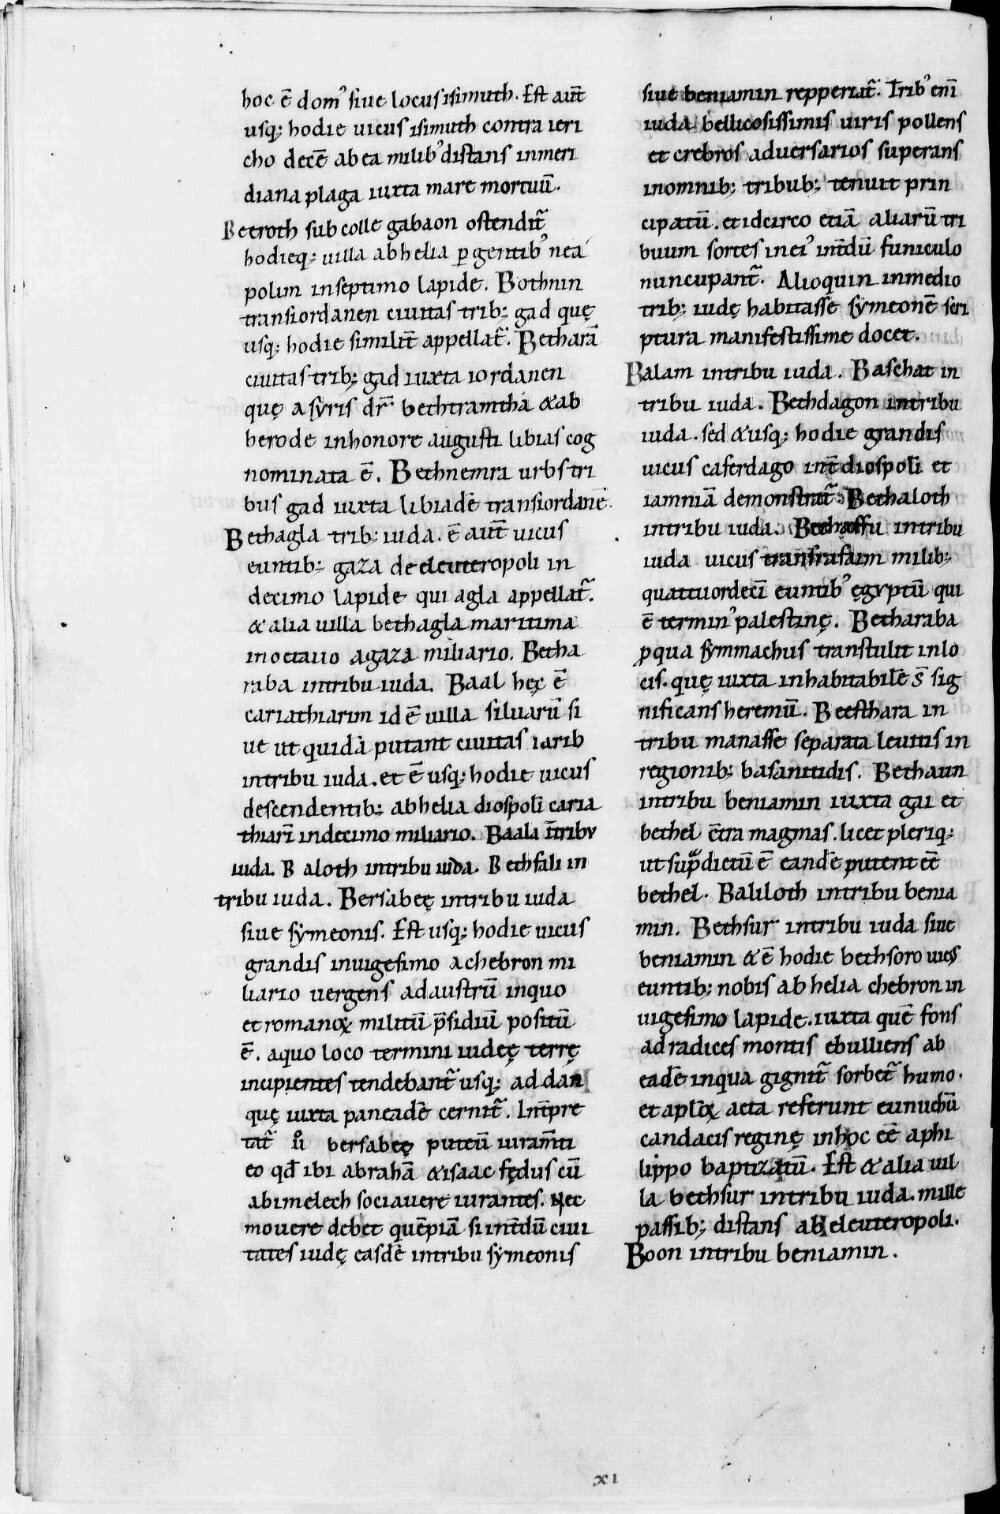 hoc ē dom᾽ siue locus isimuth. Est aut̄
usq; hodie uicus isimuth contra ieri
cho decē ab ea milib᾽ distans in meri
diana plaga iuxta mare mortuū.
Beeroth sub colle gabaon ostendit᷑
hodieq; uilla ab helia ꝑgentib᾽ nea
polim in septimo lapide. Bothnin
transiordanen ciuitas trib; gad quę
usq; hodie similit̄ appellat᷑. Betharā
ciuitas trib; gad iuxta iordanen
quę a syris dr̄ bethramtha & ab
herode in honore augusti libias cog
nominata ē. Bethnemra urbs tri
bus gad iuxta libiadē transiordanē.
Bethagla trib; iuda. ē aut̄ uicus
euntib; gaza de eleuteropoli in
decimo lapide qui agla appellat᷑.
& alia uilla bethagla maritima
in octauo a gaza miliario. Betha
raba in tribu iuda. Baal hęc ē
cariathiarim id ē uilla siluarū si
ue ut quidā putant ciuitas iarib
in tribu iuda. et ē usq; hodie uicus
descendentib; ab helia diospolī caria
thiarī in decimo miliario. Baala ītribu
iuda. Baloth in tribu iuda. Bethfali in
tribu iuda. Bersabeę in tribu iuda
siue symeonis. Est usq; hodie uicus
grandis in uigesimo a chebron mi
liario uergens ad austrū in quo
et romanoꝝ militū p̄sidiū positū
ē. a quo loco termini iudeę terrę
incipientes tendebant᷑ usq; ad dan
quę iuxta paneadē cernit᷑. Int̄pre
tat᷑ u̅ bersabeę puteū iuram̄ti
eo qd̄ ibi abrahā & isaac fędus cū
abimelech sociauere iurantes. Nec
mouere debet quēpiā si int̄dū ciui
tates iudę easdē in tribu symeonis
siue beniamin repperiat᷑. Trib᾽ enī
iuda bellicosissimis uiris pollens
et crebros aduersarios superans
in omnib; tribub; tenuit prin
cipatū. et idcirco etiā aliarū tri
buum sortes in ei᾽ int̄dū funiculo
nuncupant᷑. Alioquin in medio
trib; iudę habitasse symeonē scri
ptura manifestissime docet.
Balam in tribu iuda. Baschat in
tribu iuda. Bethdagon in tribu
iuda. sed & usq; hodie grandis
uicus caferdago int̄ diospolī et
iamniā demonstrat᷑. Bethaloth
in tribu iuda. Bethaffu in tribu
iuda uicus trans rafaim milib;
quattuordecī euntib᾽ ęgyptū qui
ē termin᾽ palestinę. Betharaba
ꝓ qua symmachus transtulit in lo
cis. quę iuxta inhabitabilē s̄ sig
nificans heremū. Beesthara in
tribu manasse separata leuitis in
regionib; basanitidis. Bethaun
in tribu beniamin iuxta gai et
bethel c̄tra magmas. licet pleriq;
ut supᷓdictū ē eandē putent ēē
bethel. Baliloth in tribu benia
min. Bethsur in tribu iuda siue
beniamin & ē hodie bethsoro uic᾽
euntib; nobis ab helia chebron in
uigesimo lapide. iuxta quē fons
ad radices montis ebulliens ab
eadē in qua gignit᷑ sorbet᷑ humo.
et aplōꝝ acta referunt eunuchū
candacis reginę in hoc ēē a phi
lippo baptizatū. Est & alia uil
la bethsur in tribu iuda. mille
passib; distans ab eleuteropoli.
Boon in tribu beniamin.
XI